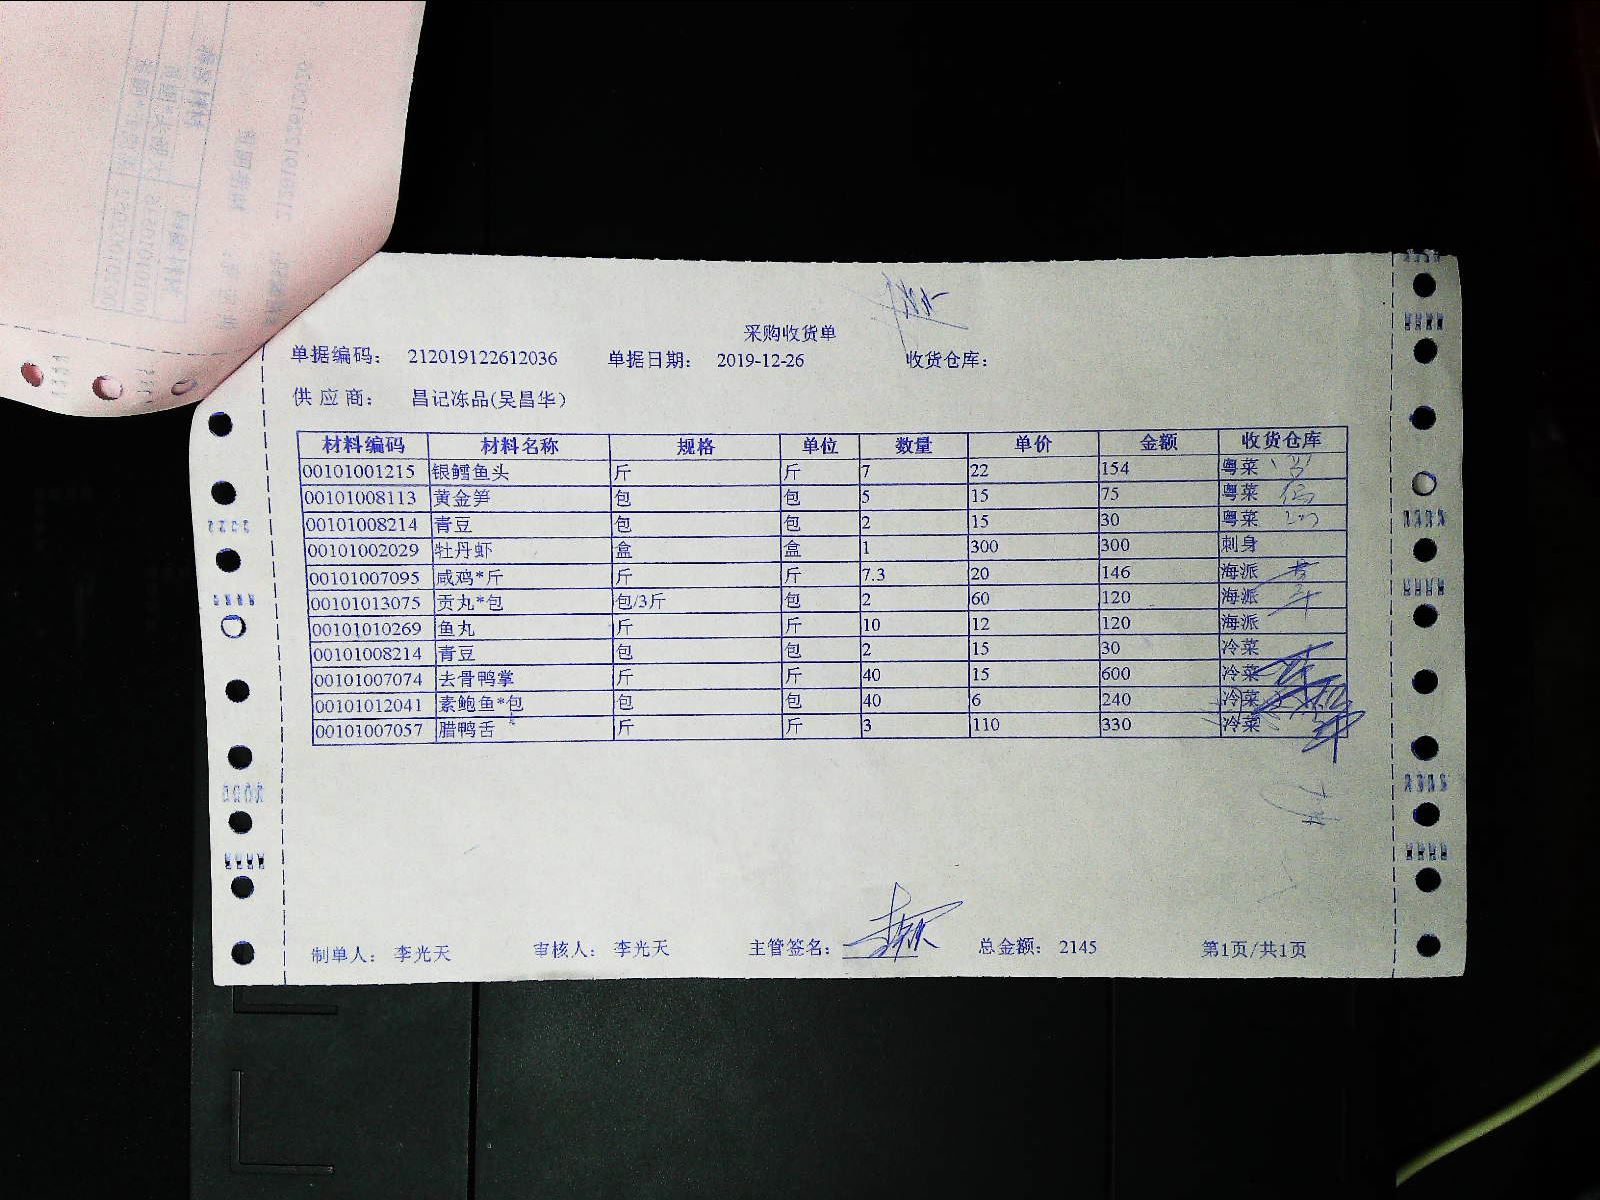 采购收货单
单据编码： 212019122612036 单据日期： 2019-12-26 收货仓库：
供 应 商： 昌记冻品(吴昌华)
材料编码 材料名称 规格 单位 数量 单价 金额 收货仓库
00101001215 银鳕鱼头 斤 斤 7 22 154 粤菜
00101008113 黄金笋 包 包 5 15 75 粤菜
00101008214 青豆 包 包 2 15 30 粤菜
00101002029 牡丹虾 盒 盒 1 300 300 刺身
00101007095 咸鸡*斤 斤 斤 7.3 20 146 海派
00101013075 贡丸*包 包/3斤 包 2 60 120 海派
00101010269 鱼丸 斤 斤 10 12 120 海派
00101008214 青豆 包 包 2 15 30 冷菜
00101007074 去骨鸭掌 斤 斤 40 15 600 冷菜
00101012041 素鲍鱼*包 包 包 40 6 240 冷菜
00101007057 腊鸭舌 斤 斤 3 110 330 冷菜
制单人： 李光天 审核人： 李光天 主管签名： 总金额： 2145 第1页/共1页